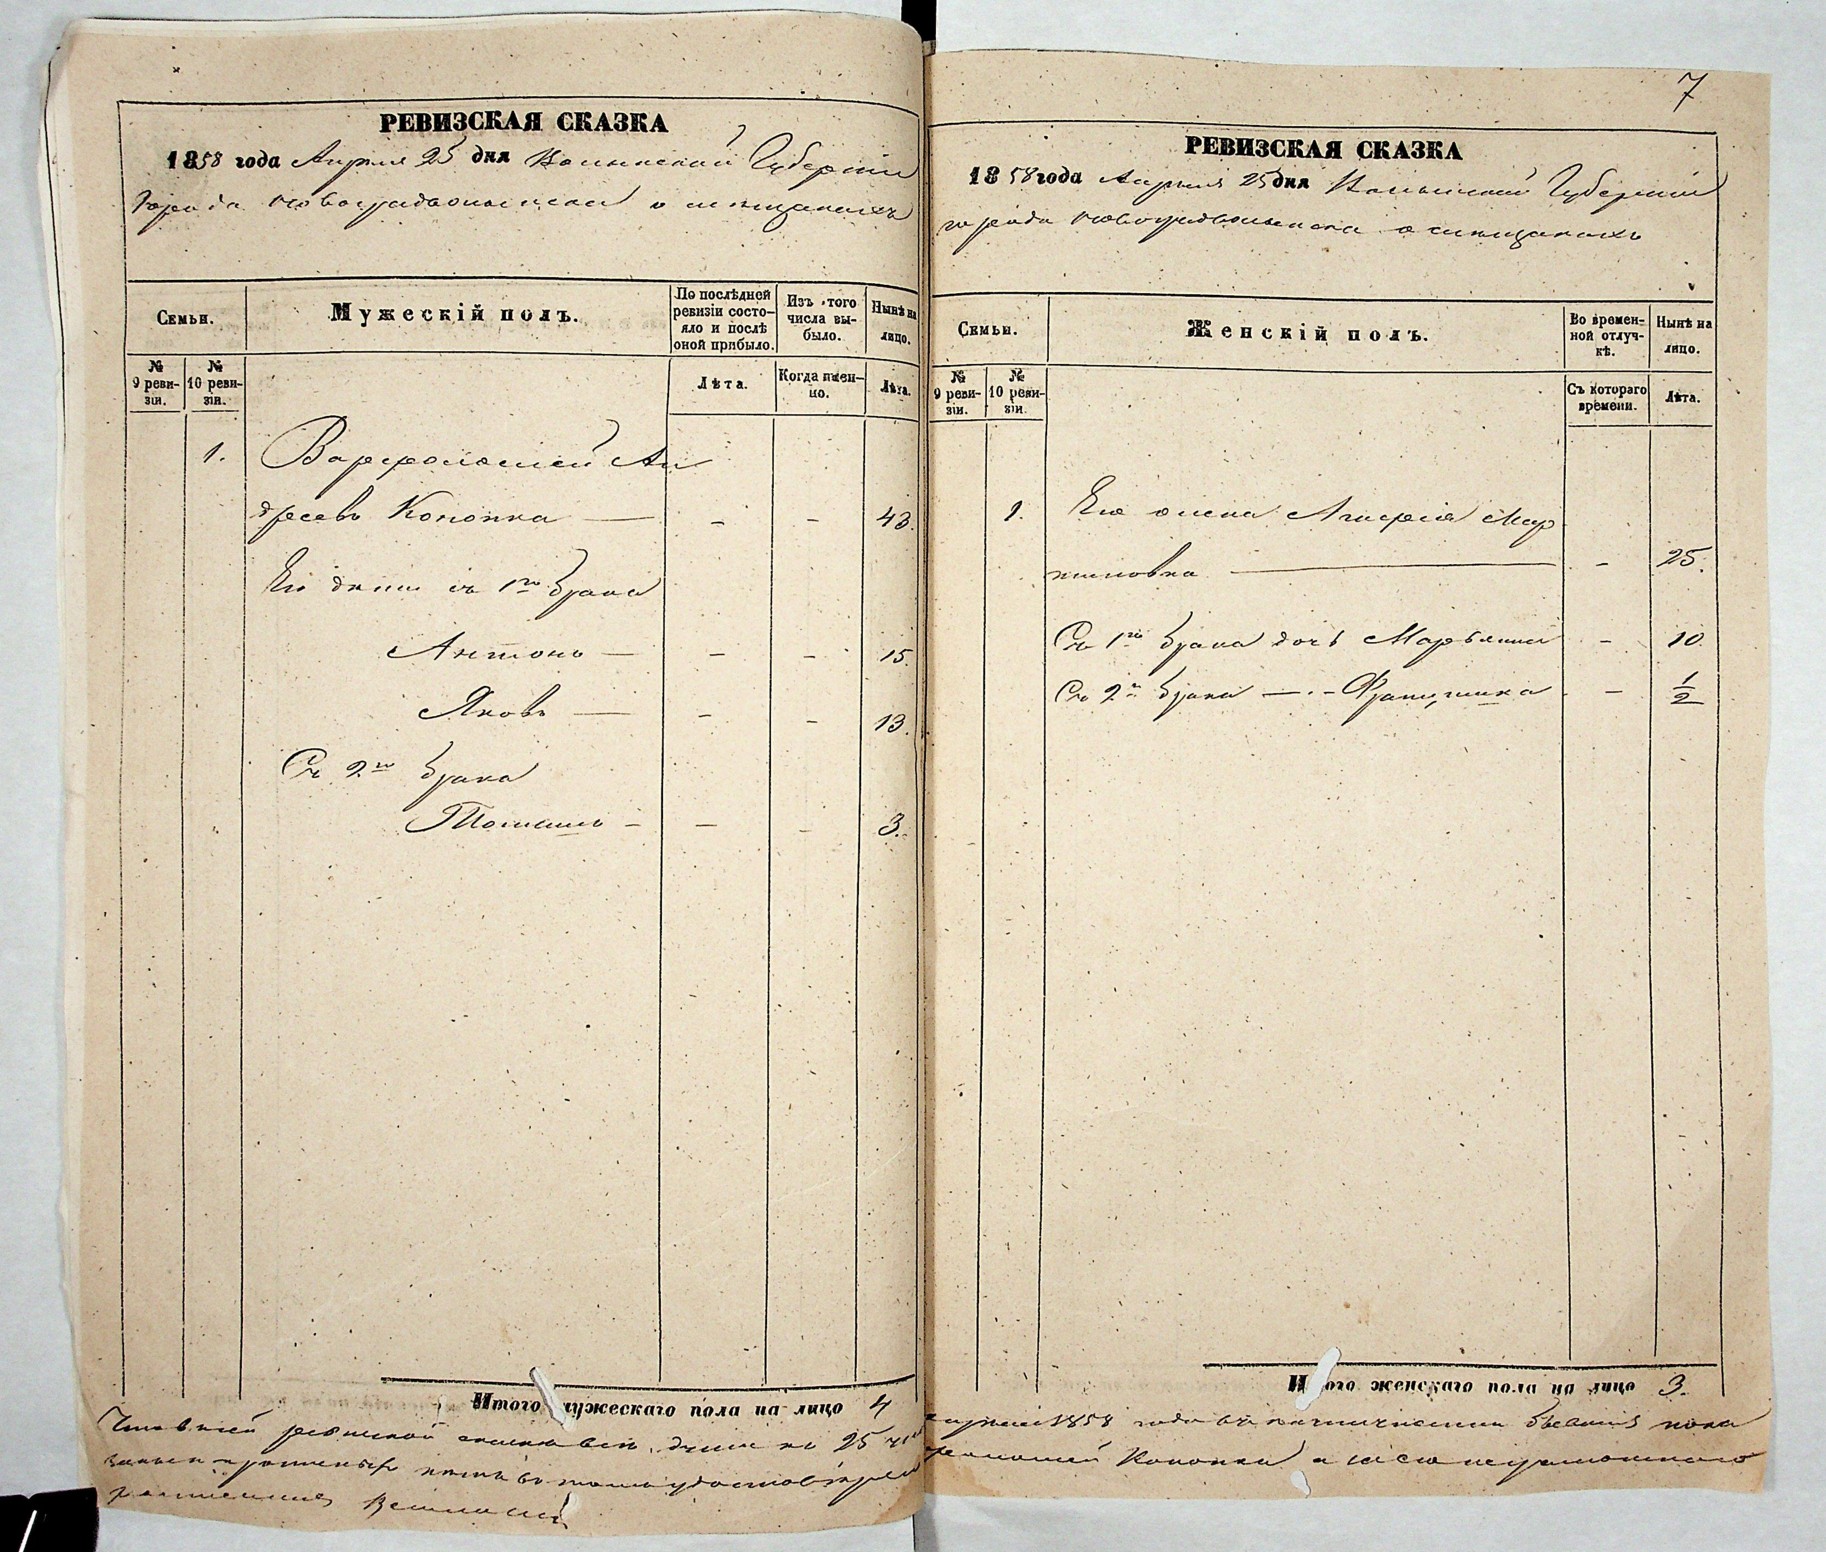 РЕВИЗСКАЯ СКАЗКА
1858 года Апреля 25 дня Волынской Губернии
Города Новоградволынска о мещанахъ
Семьи.
Мужескій полъ.
По послѣдней ревизіи состояло и послѣ оной прибыло.
Изъ того числа выбыло.
Нынѣ на лицо.
№ 9 ревизіи.
№ 10 ревизіи.
Лѣта.
Когда именно.
Лѣта.
1. Варфоломей Ан
дреевъ Кононка — - - 43.
Его дети съ 1го брака
Антонъ — - - 15.
Яковъ — - - 13.
Съ 2го брака
Томашъ - - - 3.
Итого мужескаго пола на лицо 4
7
РЕВИЗСКАЯ СКАЗКА
1858 года Апреля 25 дня Волынской Губернии
города Новоградволынска о мещанахъ
Семьи.
Женскій полъ.
Во временной отлучкѣ.
Нынѣ на лицо.
№ 9 ревизіи.
№ 10 ревизіи.
Съ котораго времени.
Лѣта.
1. Его жена Мар
тиновна — - 25.
Съ 1го брака дочь Марьянна - 10.
Съ 2го брака — . - Францишка - 1/2
Итого женскаго пола на лицо 3.
Что въ сей ревизской сказке все души по 25 ч
апреля 1858 года
Кононка